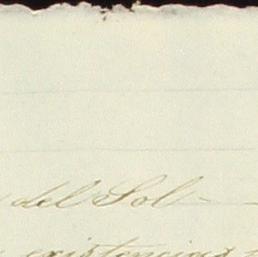 del Sol
existencias